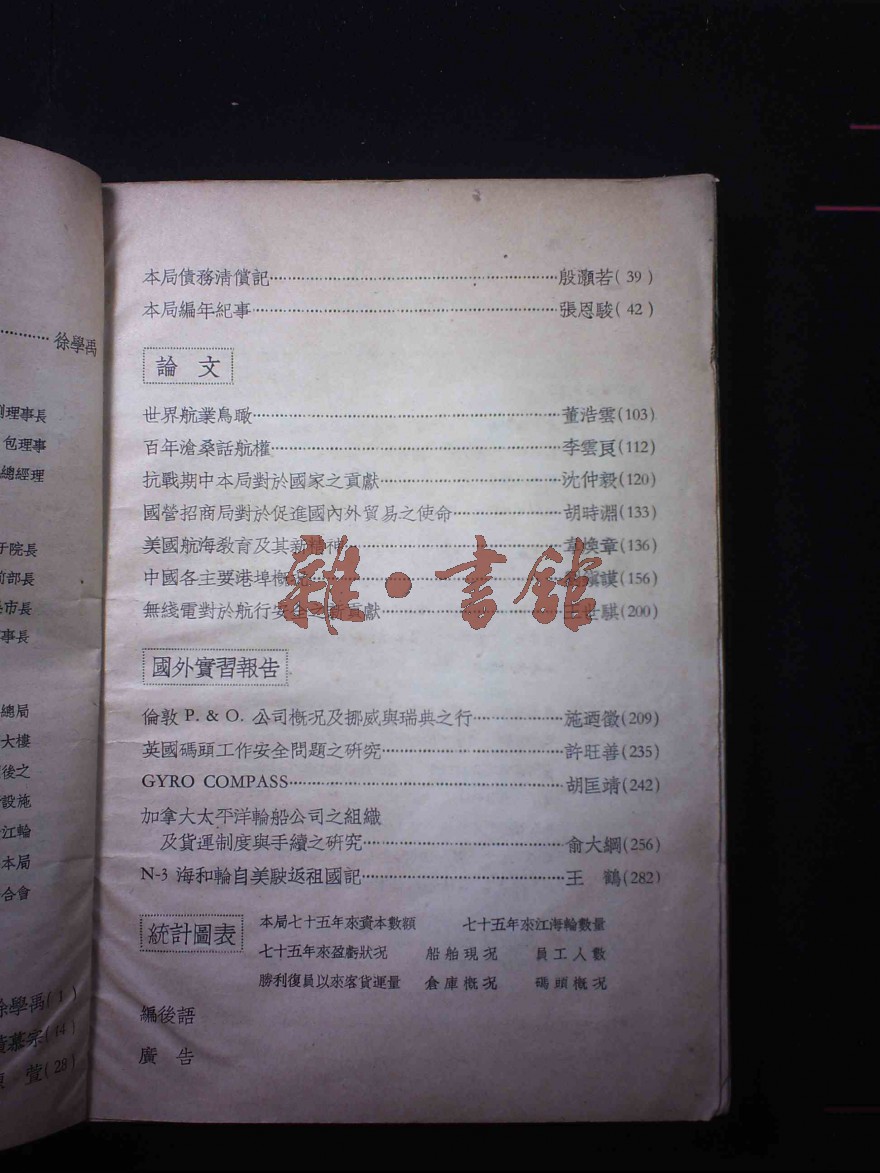 徐學禹
理事長
包理事
總經理
院長
前部長
市長
事長
總局
大樓
後之
設施
江輪
本局
合會
徐學禹(1)
黃慕宗(14)
萱(28)
本局債務清償記 殷灝若(39)
本局編年紀事 張恩駿(42)
論文
世界航業鳥瞰 董浩雲(103)
百年滄桑話航權 李雲良(112)
抗戰期中本局對於國家之貢獻 沈仲毅(120)
國營招商局對於促進國內外貿易之使命 胡時淵(133)
美國航海教育及其新精神 韋煥章(136)
中國各主要港埠概況 謨(156)
無綫電對於航行安全之新貢獻 王世騏(200)
國外實習報告
倫敦 P. & O. 公司概況及挪威與瑞典之行 施迺徵(209)
英國碼頭工作安全問題之研究 許旺善(235)
GYRO COMPASS 胡匡靖(242)
加拿大太平洋輪船公司之組織
及貨運制度與手續之研究 俞大綱(256)
N-3 海和輪自美駛返祖國記 王鶴(282)
統計圖表
本局七十五年來資本數額 七十五年來江海輪數量
七十五年來盈虧狀況 船舶現況 員工人數
勝利復員以來客貨運量 倉庫概況 碼頭概況
編後語
廣告
雜·書館